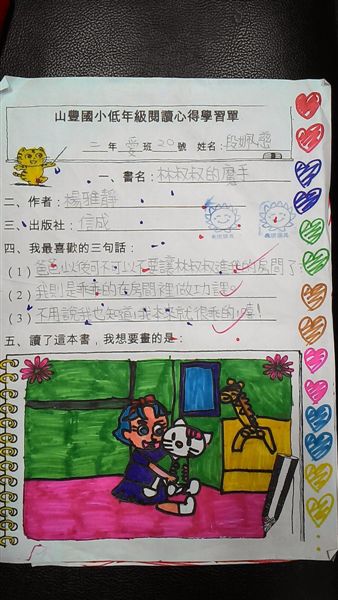 山豐國小低年級閱讀心得學習單
二年愛班20號 姓名：段姵慈
一、書名：林叔叔的魔手
二、作者：楊雅靜
三、出版社：信成
四、我最喜歡的三句話：
(1) 爸爸以後可不可以不要讓林叔叔進我的房間了？
(2) 我則是乖乖的在房間裡做功課。
(3) 不用說我也知道，我本來就很乖的，嘻！
五、讀了這本書，我想要畫的是：